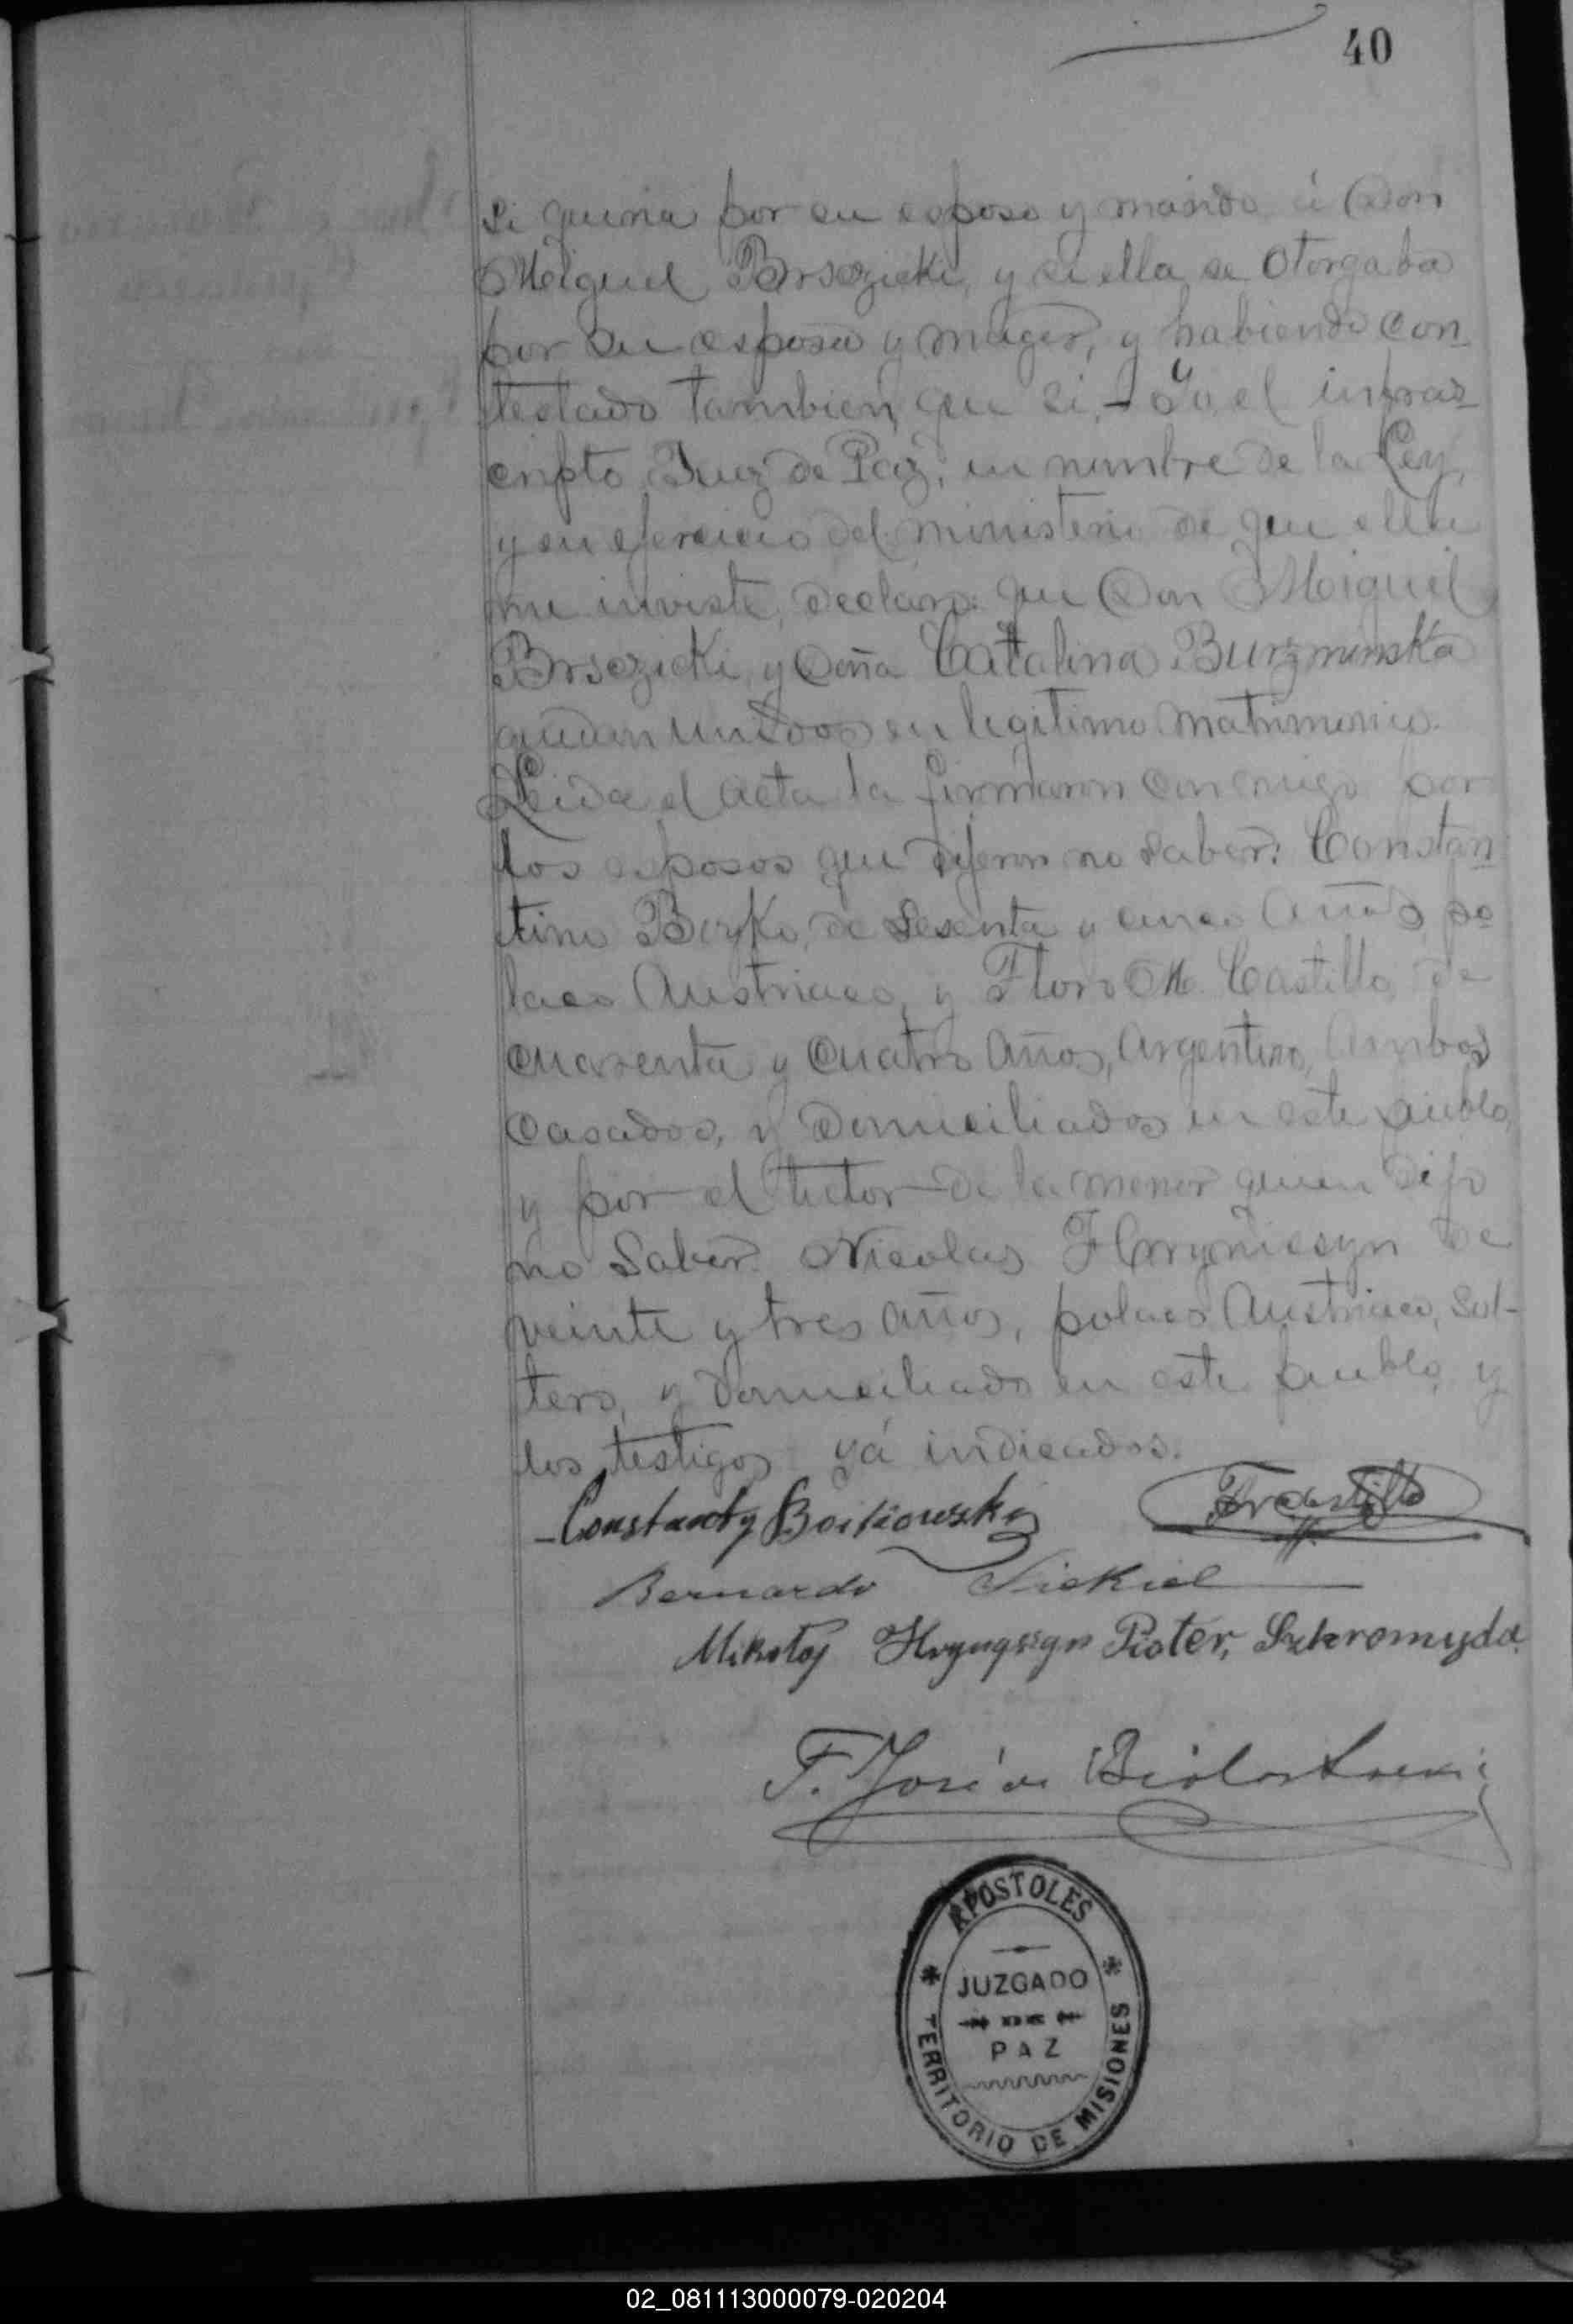 40
si queria por su esposo y marido á Don
Miguel Brsezicki, y si ella se otorgaba
por su esposa y muger, y habiendo con-
testado tambien que si, - Yo, el infras-
cripto Juez de Paz, en nombre de la Ley,
y en ejercicio del ministerio de que ella
me inviste, declaro: que Don Miguel
Brsezicki, y Doña Catalina Burzminska
quedan unidos en legitimo matrimonio.
Leida el acta la firmaron conmigo por
los esposos que dijeron no saber: Constan-
tino Boyko, de sesenta y cinco años, po-
laco Austriaco, y Floro M. Castillo, de
cuarenta y cuatro años, Argentino, ambos
casados, y domiciliados en este pueblo,
y por el tutor de la menor quien dijo
no saber. Nicolas Hryniesyn de
veinte y tres años, polaco Austriaco, sol-
tero, y domiciliado en este pueblo, y
los testigos yá indicados.
Constanty Boikowski
Bernardo Siekiel
Mikołaj Hrynyszyn Pioter, Szkromyda
F. José de Bialostocki
APOSTOLES
JUZGADO
DE
PAZ
TERRITORIO DE MISIONES
02_081113000079-020204